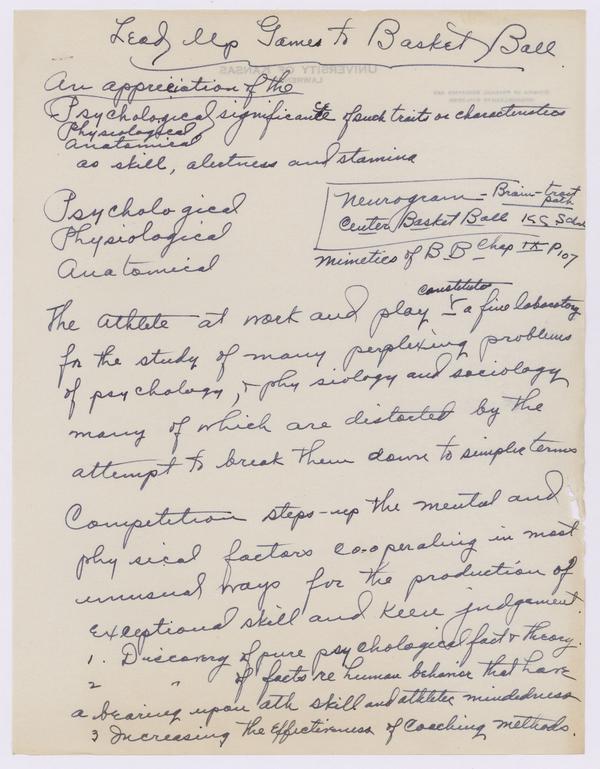 Lead Up Games to Basket Ball
UNIVERSITY OF KANSAS
LAWRENCE
An appreciation of the
Psychological significance of such traits or characteristics
Physiological
Anatomical
as skill, alertness and stamina
Neurogram - Brain - trait
path
Center Basket Ball
Mimetics of B B Chap IX P107
Psychological
Physiological
Anatomical
constitutes
The athlete at work and play a fine laboratory
for the study of many perplexing problems
of psychology, + physiology and sociology
many of which are distorted by the
attempt to break them down to simpler terms
Competition steps-up the mental and
physical factors co-operating in most
unusual ways for the production of
exceptional skill and keen judgement.
1. Discovery of pure psychological fact & theory.
2 " of facts re human behavior that have
a bearing upon ath skill and athletic mindedness
3 Increasing the Effectiveness of Coaching methods.